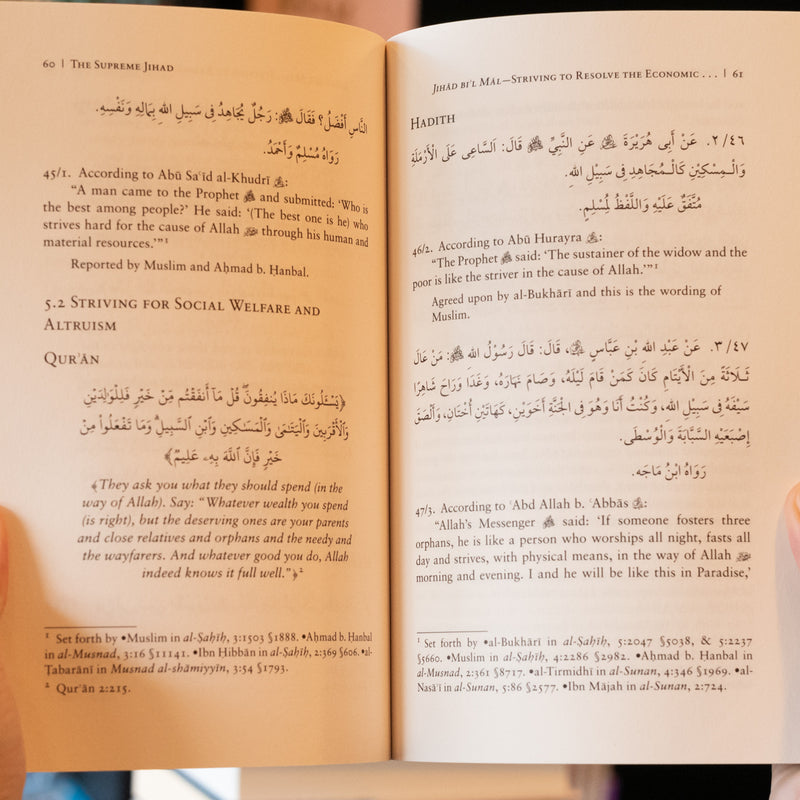 60 | The Supreme Jihad
النَّاسِ أَفْضَلُ؟ فَقَالَ ﷺ: رَجُلٌ يُجَاهِدُ فِى سَبِيلِ اللهِ بِمَالِهِ وَنَفْسِهِ.
رَوَاهُ مُسْلِمٌ وَأَحْمَدُ.
45/1. According to Abū Saʿīd al-Khudrī :
“A man came to the Prophet ﷺ and submitted: ‘Who is
the best among people?’ He said: ‘(The best one is he) who
strives hard for the cause of Allah through his human and
material resources.’”¹
Reported by Muslim and Aḥmad b. Ḥanbal.
5.2 Striving for Social Welfare and
Altruism
Qurʾān
﴿يَسْـَٔلُونَكَ مَاذَا يُنفِقُونَۖ قُلْ مَآ أَنفَقْتُم مِّنْ خَيْرٍ فَلِلْوَٰلِدَيْنِ
وَٱلْأَقْرَبِينَ وَٱلْيَتَـٰمَىٰ وَٱلْمَسَـٰكِينِ وَٱبْنِ ٱلسَّبِيلِۗ وَمَا تَفْعَلُوا۟ مِنْ
خَيْرٍ فَإِنَّ ٱللَّهَ بِهِۦ عَلِيمٌ﴾
﴾They ask you what they should spend (in the
way of Allah). Say: “Whatever wealth you spend
(is right), but the deserving ones are your parents
and close relatives and orphans and the needy and
the wayfarers. And whatever good you do, Allah
indeed knows it full well.”﴿²
¹ Set forth by •Muslim in al-Ṣaḥīḥ, 3:1503 §1888. •Aḥmad b. Ḥanbal
in al-Musnad, 3:16 §11141. •Ibn Ḥibbān in al-Ṣaḥīḥ, 2:369 §606. •al-
Ṭabarānī in Musnad al-shāmiyyīn, 3:54 §1793.
² Qurʾān 2:215.
Jihād bi’l Māl—Striving to Resolve the Economic . . . | 61
Hadith
٤٦/ ٢. عَنْ أَبِى هُرَيْرَةَ عَنِ النَّبِيِّ ﷺ قَالَ: اَلسَّاعِى عَلَى الْأَرْمَلَةِ
وَالْـمِسْكِيْنِ كَالْـمُجَاهِدِ فِى سَبِيْلِ اللهِ.
مُتَّفَقٌ عَلَيْهِ وَاللَّفْظُ لِمُسْلِمٍ.
46/2. According to Abū Hurayra :
“The Prophet ﷺ said: ‘The sustainer of the widow and the
poor is like the striver in the cause of Allah.’”¹
Agreed upon by al-Bukhārī and this is the wording of
Muslim.
٤٧/ ٣. عَنْ عَبْدِ اللهِ بْنِ عَبَّاسٍ ، قَالَ: قَالَ رَسُوْلُ اللهِ ﷺ: مَنْ عَالَ
ثَـلَاثَةً مِنَ الْأَيْتَامِ كَانَ كَمَنْ قَامَ لَيْلَهُ، وَصَامَ نَهَارَهُ، وَغَدَا وَرَاحَ شَاهِرًا
سَيْفَهُ فِى سَبِيْلِ اللهِ، وَكُنْتُ أَنَا وَهُوَ فِى الْجَنَّةِ أَخَوَيْنِ، كَهَاتَيْنِ أُخْتَانِ، وَأَلْصَقَ
إِصْبَعَيْهِ السَّبَّابَةَ وَالْوُسْطَى.
رَوَاهُ ابْنُ مَاجَه.
47/3. According to ʿAbd Allah b. ʿAbbās :
“Allah’s Messenger ﷺ said: ‘If someone fosters three
orphans, he is like a person who worships all night, fasts all
day and strives, with physical means, in the way of Allah
morning and evening. I and he will be like this in Paradise,’
¹ Set forth by •al-Bukhārī in al-Ṣaḥīḥ, 5:2047 §5038, & 5:2237
§5660. •Muslim in al-Ṣaḥīḥ, 4:2286 §2982. •Aḥmad b. Ḥanbal in
al-Musnad, 2:361 §8717. •al-Tirmidhī in al-Sunan, 4:346 §1969. •al-
Nasāʾī in al-Sunan, 5:86 §2577. •Ibn Mājah in al-Sunan, 2:724.